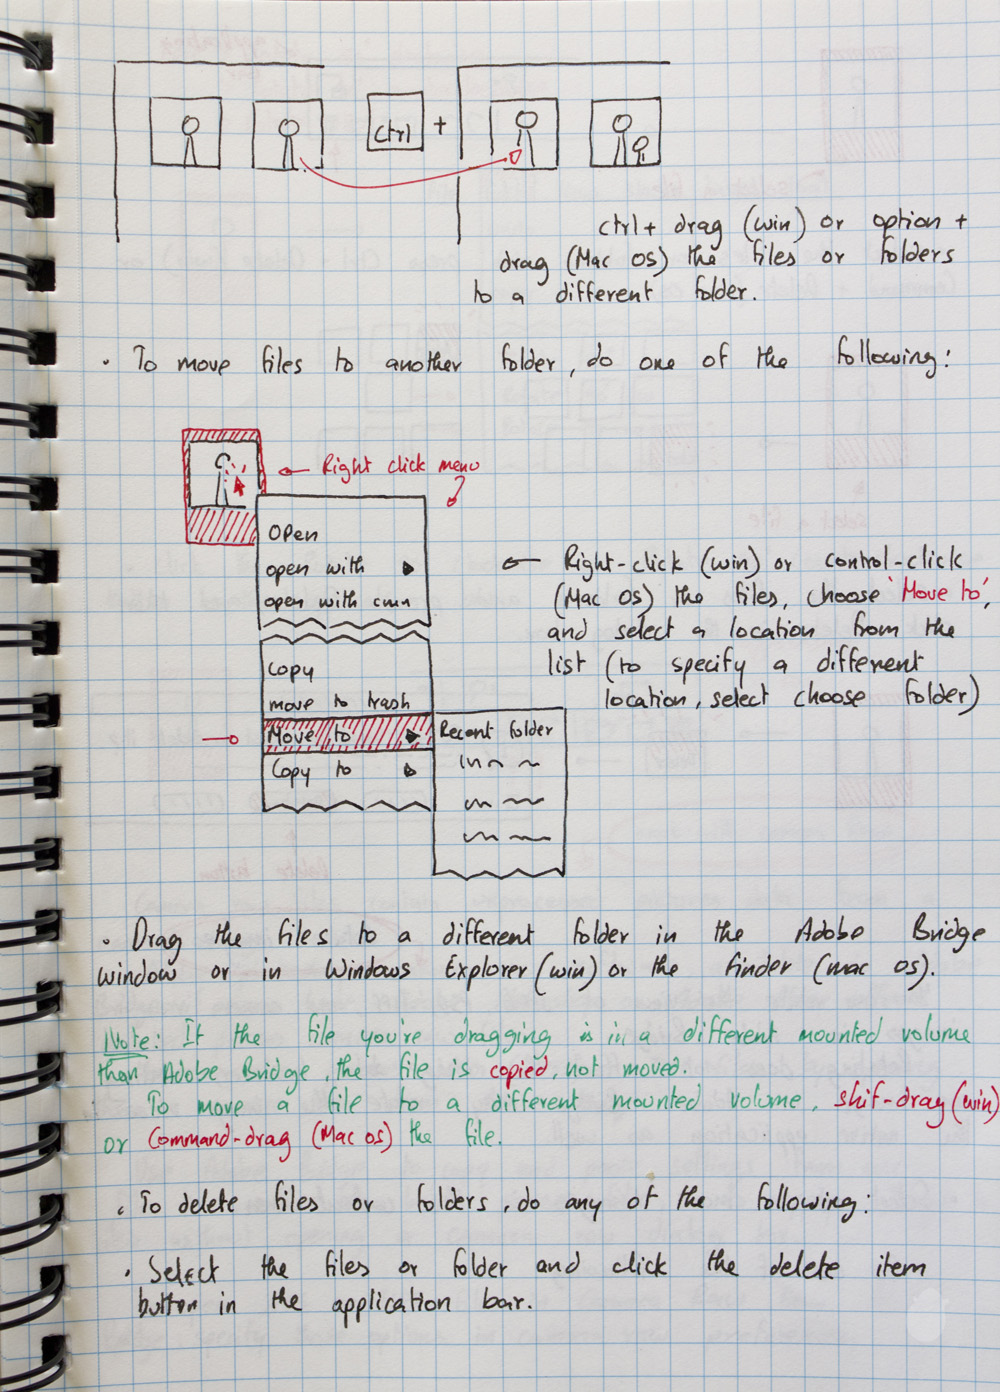 ctrl +
ctrl + drag (win) or option +
drag (Mac OS) the files or folders
to a different folder.
. To move files to another folder, do one of the following:
← Right click menu
Open
open with ▶
open with
← Right-click (win) or control-click
(Mac OS) the files, choose 'Move to',
and select a location from the
list (to specify a different
location, select choose folder)
Copy
move to trash
Move to ▶
Copy to ▶
Recent folder
. Drag the files to a different folder in the Adobe Bridge
window or in Windows Explorer (win) or the finder (mac os).
Note: If the file you're dragging is in a different mounted volume
than Adobe Bridge, the file is copied, not moved.
To move a file to a different mounted volume, shif-drag (win)
or Command-drag (Mac os) the file.
. To delete files or folders, do any of the following:
. Select the files or folder and click the delete item
button in the application bar.